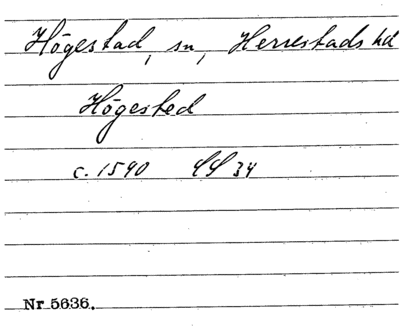 Högestad, sn, Herrestads hd
Högested
c. 1590 LL 34
Nr 5636.